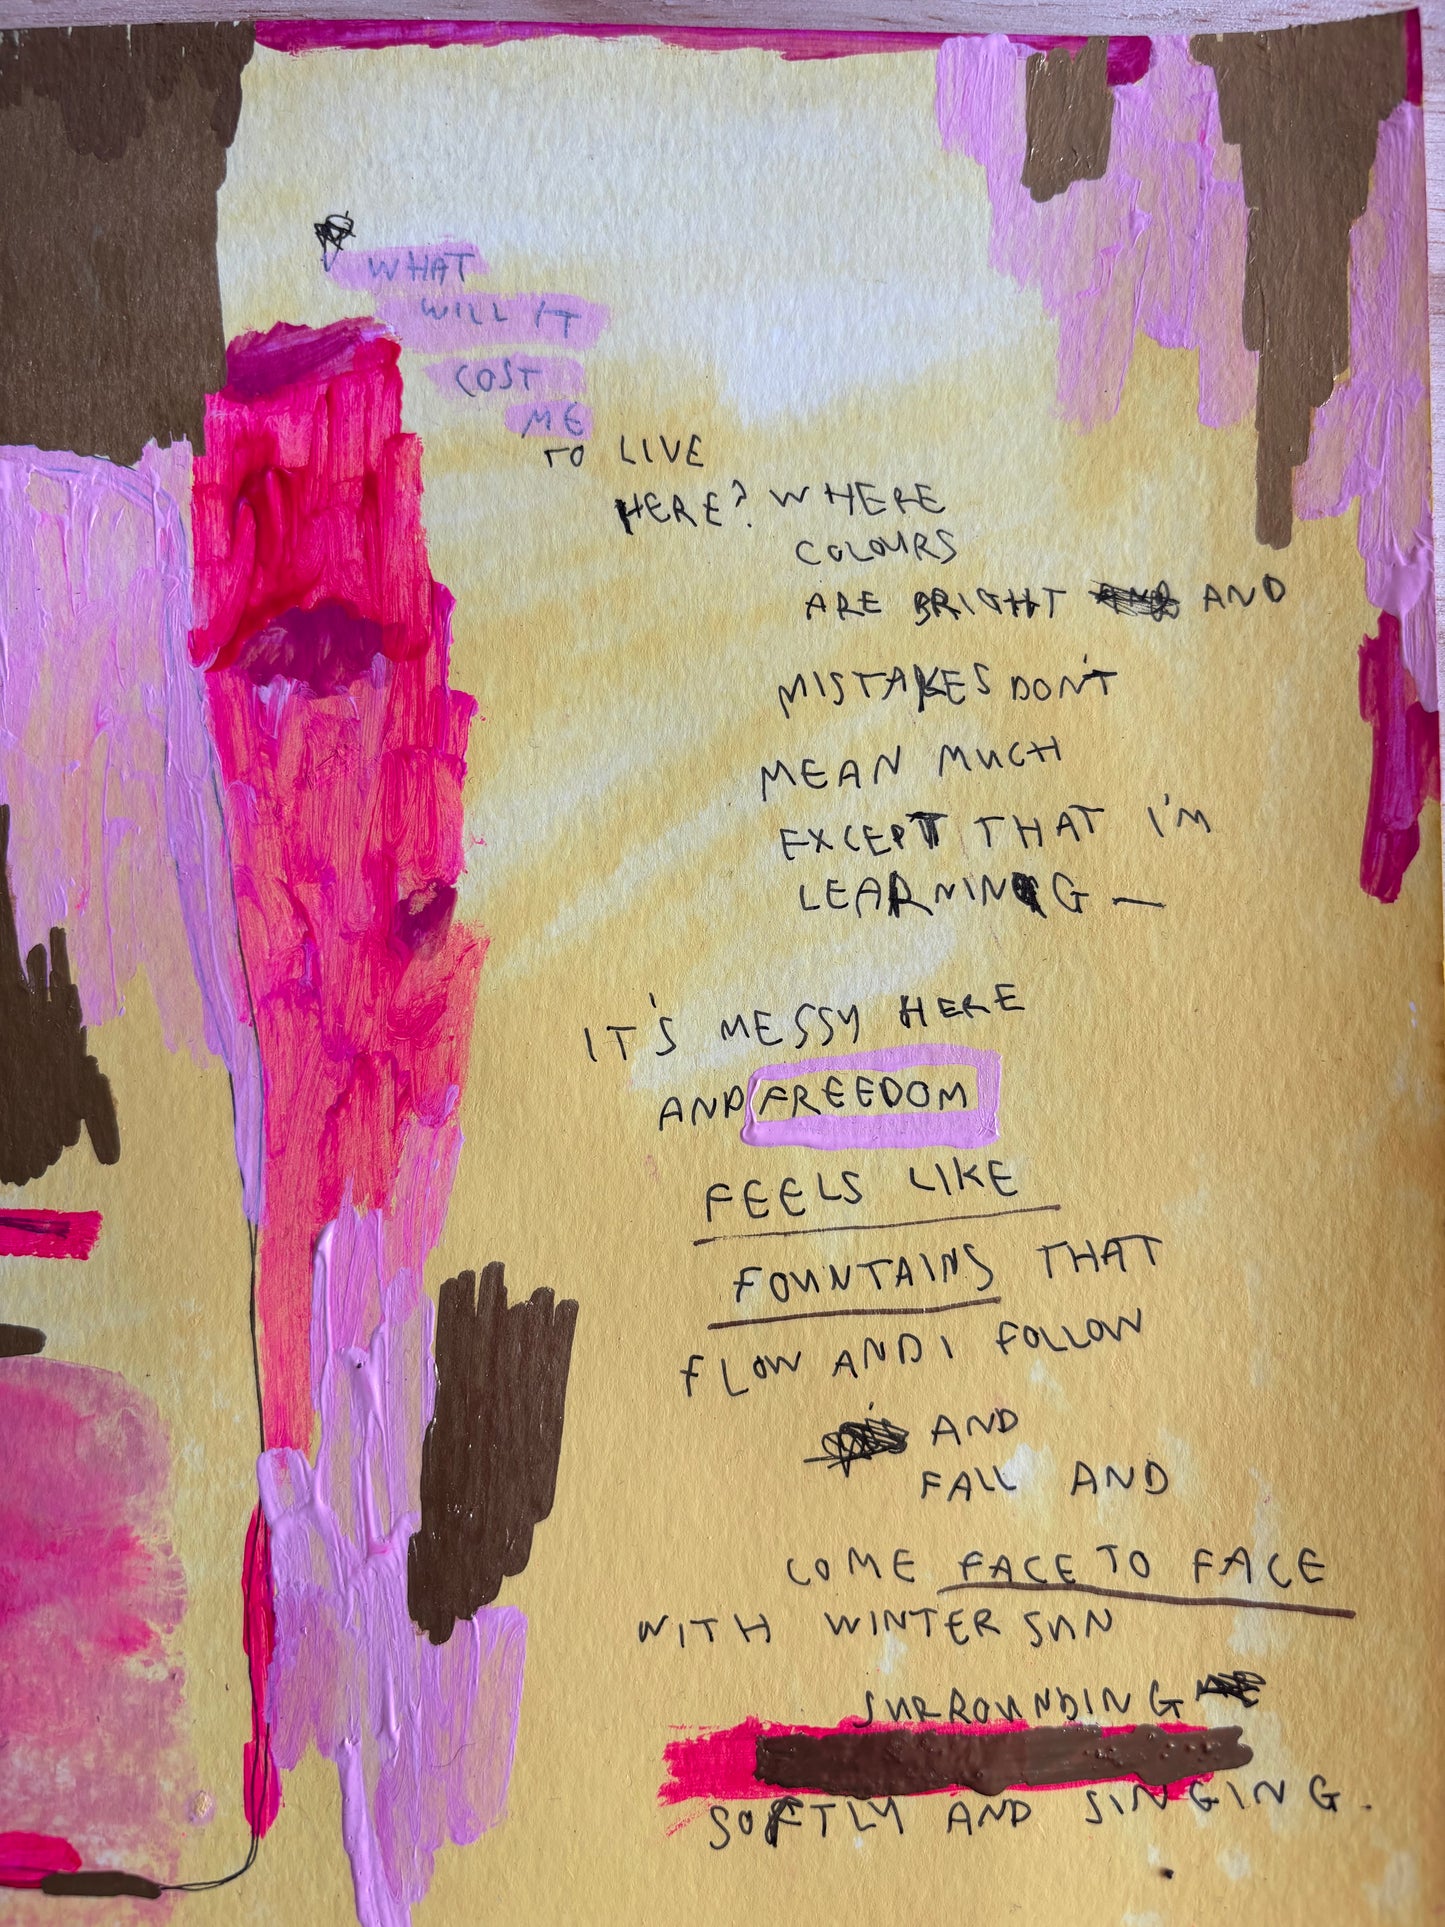 WHAT
WILL IT
COST
ME
TO LIVE
HERE? WHERE
COLOURS
ARE BRIGHT AND
MISTAKES DON'T
MEAN MUCH
EXCEPT THAT I'M
LEARNING —
IT'S MESSY HERE
AND FREEDOM
FEELS LIKE
FOUNTAINS THAT
FLOW AND I FOLLOW
AND
FALL AND
COME FACE TO FACE
WITH WINTER SUN
SURROUNDING
SOFTLY AND SINGING.